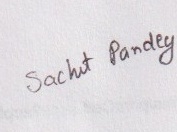 Sachit Pandey